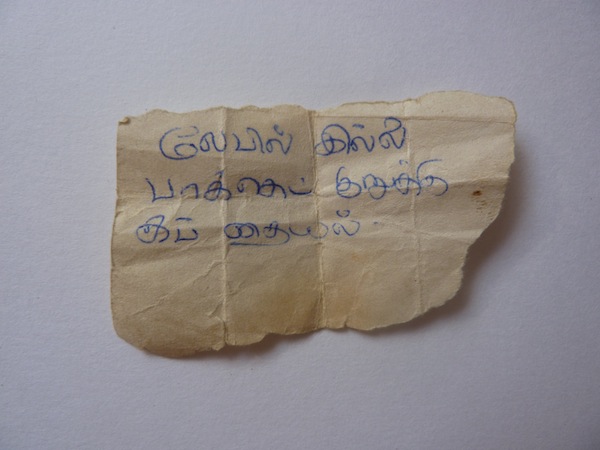 லேபில் இல்லை
பாக்கெட் குறுக்கே
கப் தையல்